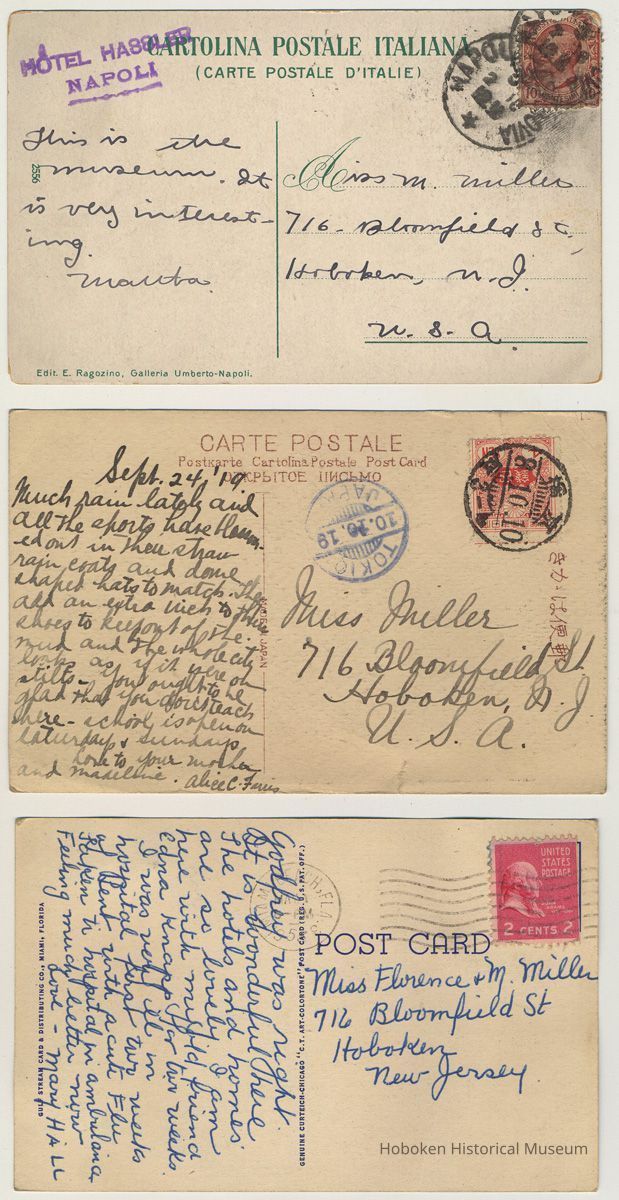 HÔTEL HASSLER
NAPOLI
CARTOLINA POSTALE ITALIANA
(CARTE POSTALE D'ITALIE)
NAPOLI
10
This is the
museum. It
is very interest-
ing.
2556
A Miss M. Miller
716 - Bloomfield St,
Hoboken, N.J.
U. S. A.
Edit. E. Ragozino, Galleria Umberto-Napoli.
CARTE POSTALE
Postkarte Cartolina Postale Post Card
ОТКРЫТОЕ ПИСЬМО
Sept. 24, '19.
Much rain lately and
all the sports have bloom-
ed out in their straw
rain coats and dome
shaped hats to match. They
add an extra inch to their
shoes to keep out of the
mud and the whole city
looks as if it were on
stilts - You ought to be
glad that you don't teach
here - school is open on
Saturdays & Sundays
Love to your mother
and Madeline. Alice C.
TOKIO
10.10.19
JAPAN
8.10.10
きかは便郵
JAPAN
Miss Miller
716 Bloomfield St
Hoboken, N. J
U. S. A.
Godfrey was right.
It is wonderful here
The hotels and homes
are so lovely I am
here with my old friend
Edna Knapp for two weeks
I was very ill in
hospital first two weeks
of Jan. with acute Flu
taken to hospital in ambulance
Feeling much better now
Love - Mary Hall
GULF STREAM CARD & DISTRIBUTING CO., MIAMI, FLORIDA
GENUINE CURTEICH-CHICAGO "C.T. ART-COLORTONE" POST CARD (REG. U.S. PAT. OFF.)
UNITED
STATES
POSTAGE
JOHN ADAMS
2 CENTS 2
POST CARD
Miss Florence & M. Miller
716 Bloomfield St
Hoboken
New Jersey
Hoboken Historical Museum